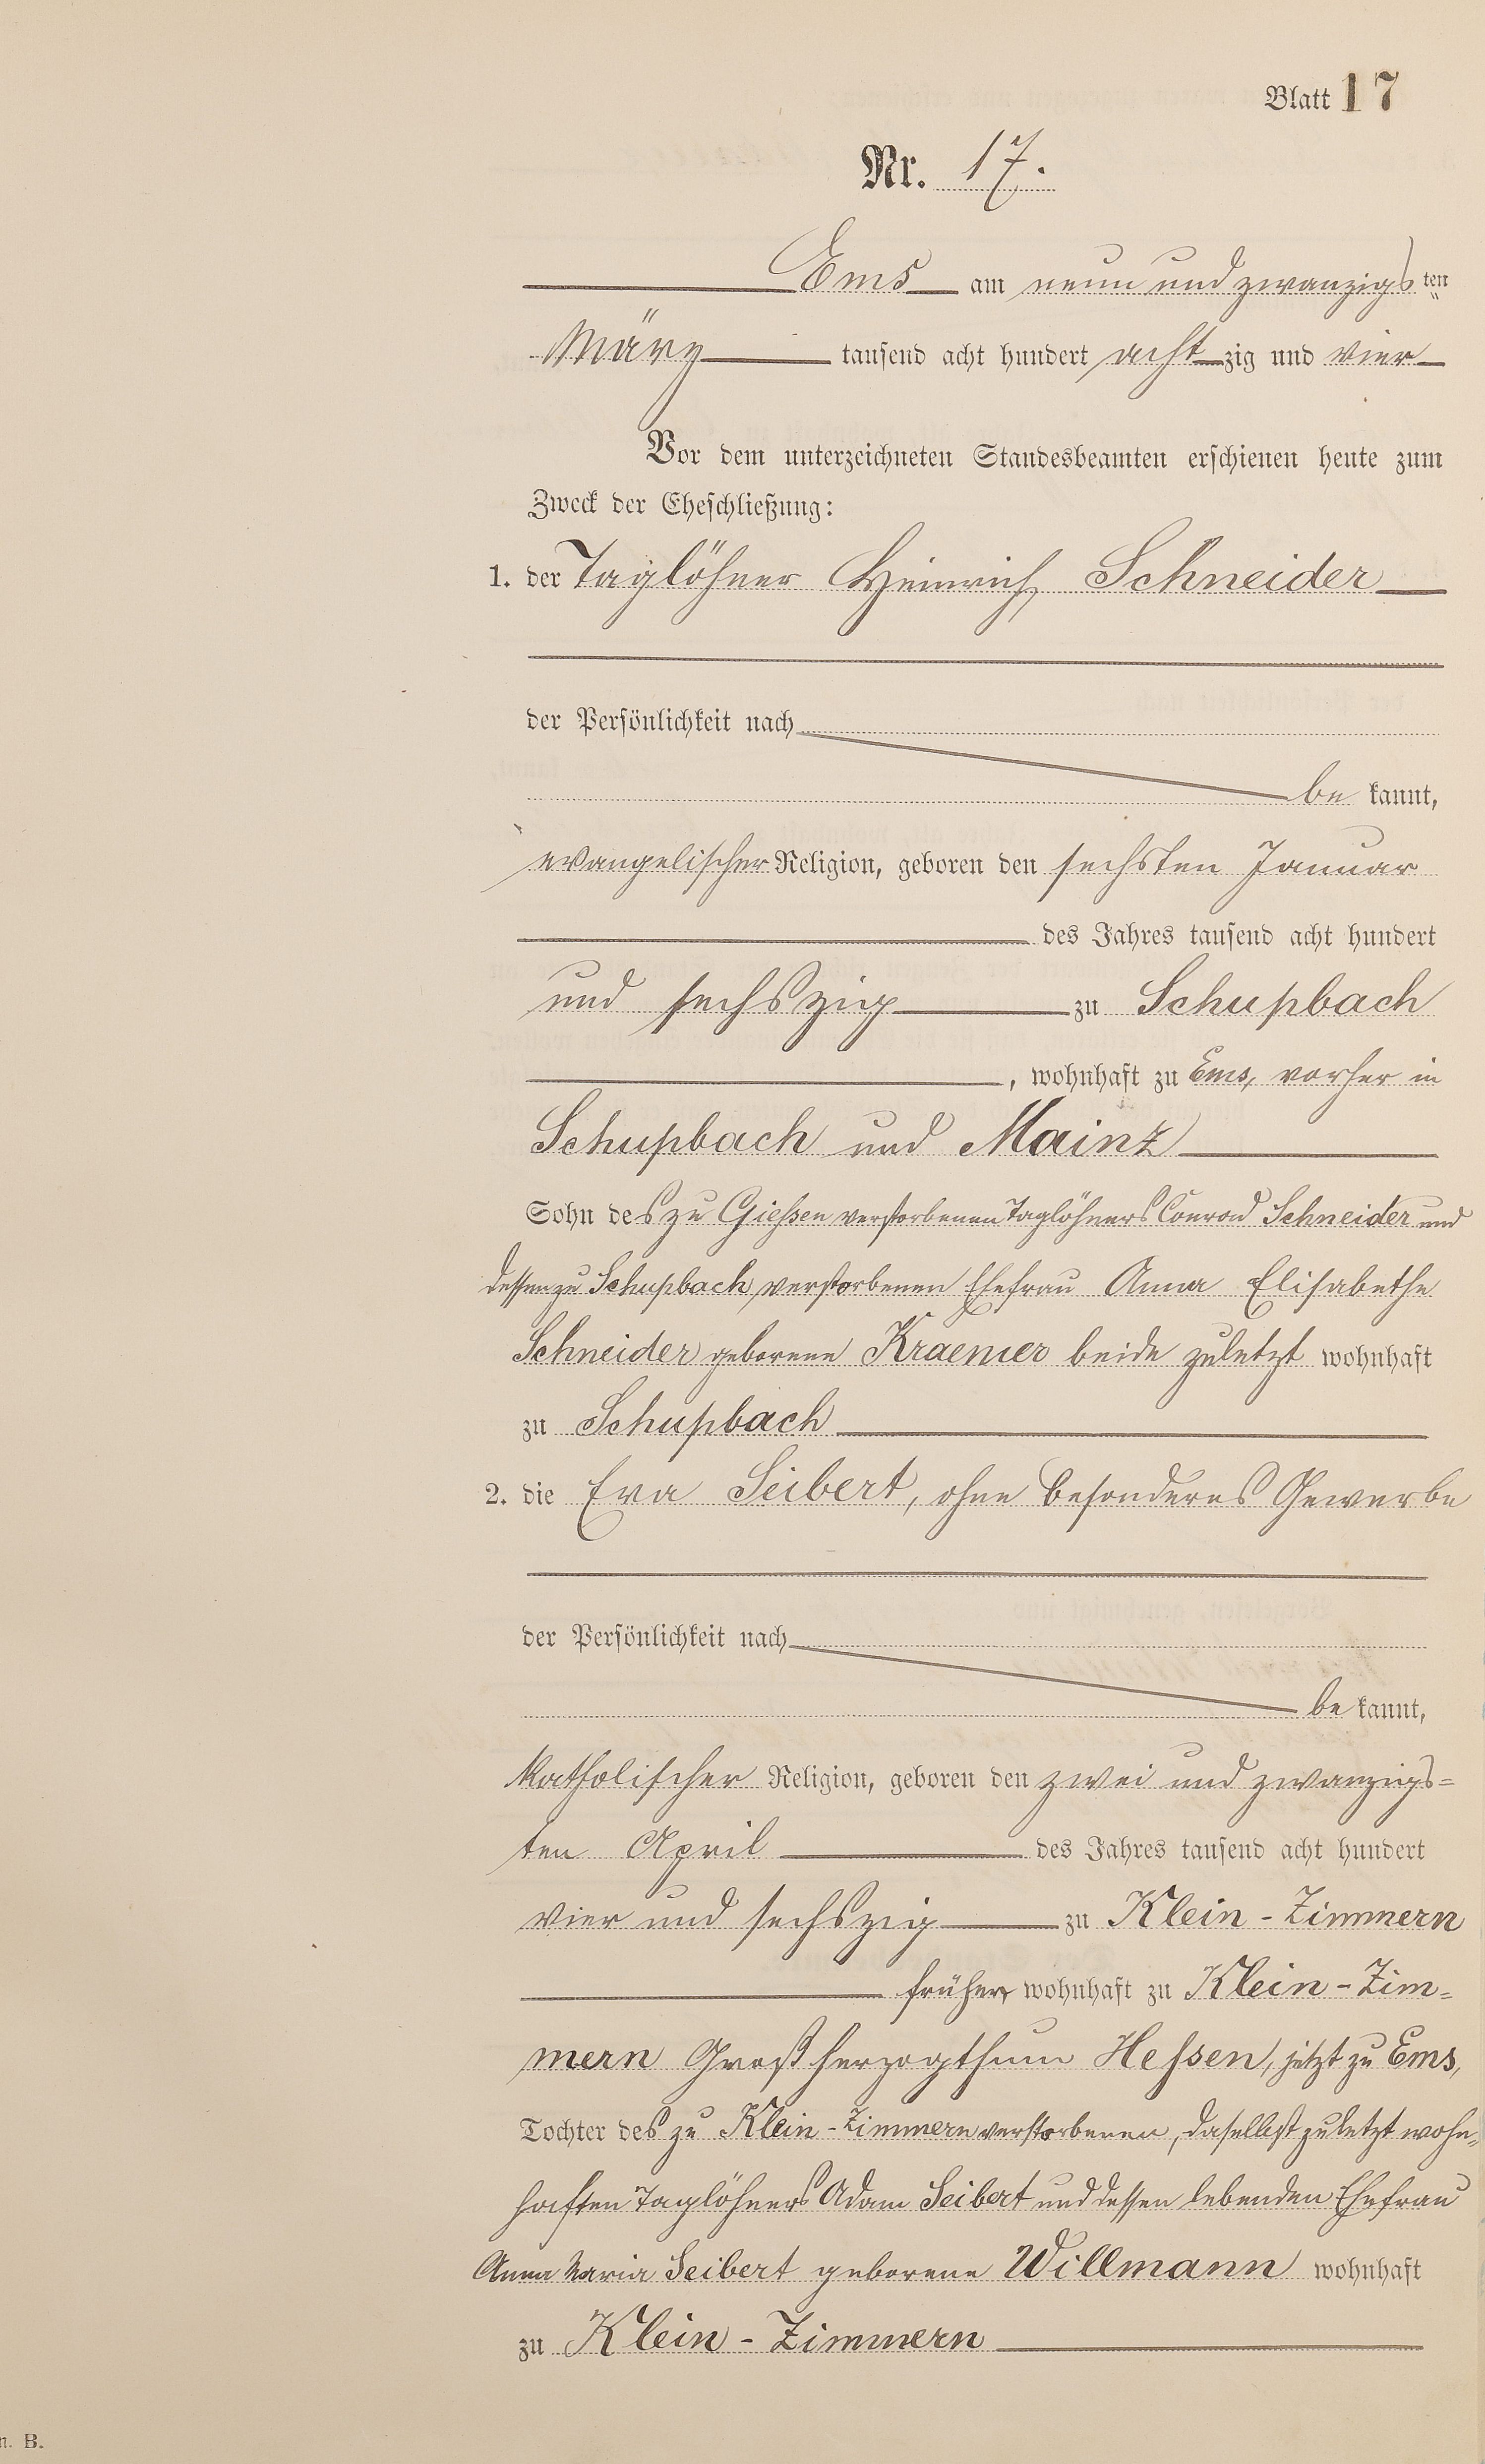 Blatt 17
Nr. 17.
Ems am neun und zwanzigsten
März tausend acht hundert achtzig und vier
Vor dem unterzeichneten Standesbeamten erschienen heute zum
Zweck der Eheschließung:
1. der Taglöhner Heinrich Schneider
der Persönlichkeit nach
be kannt,
evangelischer Religion, geboren den sechsten Januar
des Jahres tausend acht hundert
und sechszig zu Schupbach
, wohnhaft zu Ems, vorher in
Schupbach und Mainz
Sohn des zu Giessen verstorbenen Taglöhners Conrad Schneider und
dessen zu Schupbach verstorbenen Ehefrau Anna Elisabethe
Schneider geborene Kraemer beide zuletzt wohnhaft
zu Schupbach
2. die Eva Seibert, ohne besonderes Gewerbe
der Persönlichkeit nach
be kannt,
katholischer Religion, geboren den zwei und zwanzigs=
ten April des Jahres tausend acht hundert
vier und sechszig zu Klein-Zimmern
früher, wohnhaft zu Klein-Zim=
mern Großherzogthum Hessen, jetzt zu Ems,
Tochter des zu Klein-Zimmern verstorbenen, daselbst zuletzt wohn=
haften Taglöhners Adam Seibert und dessen lebenden Ehefrau
Anna Maria Seibert geborene Willmann wohnhaft
zu Klein-Zimmern
n. B.